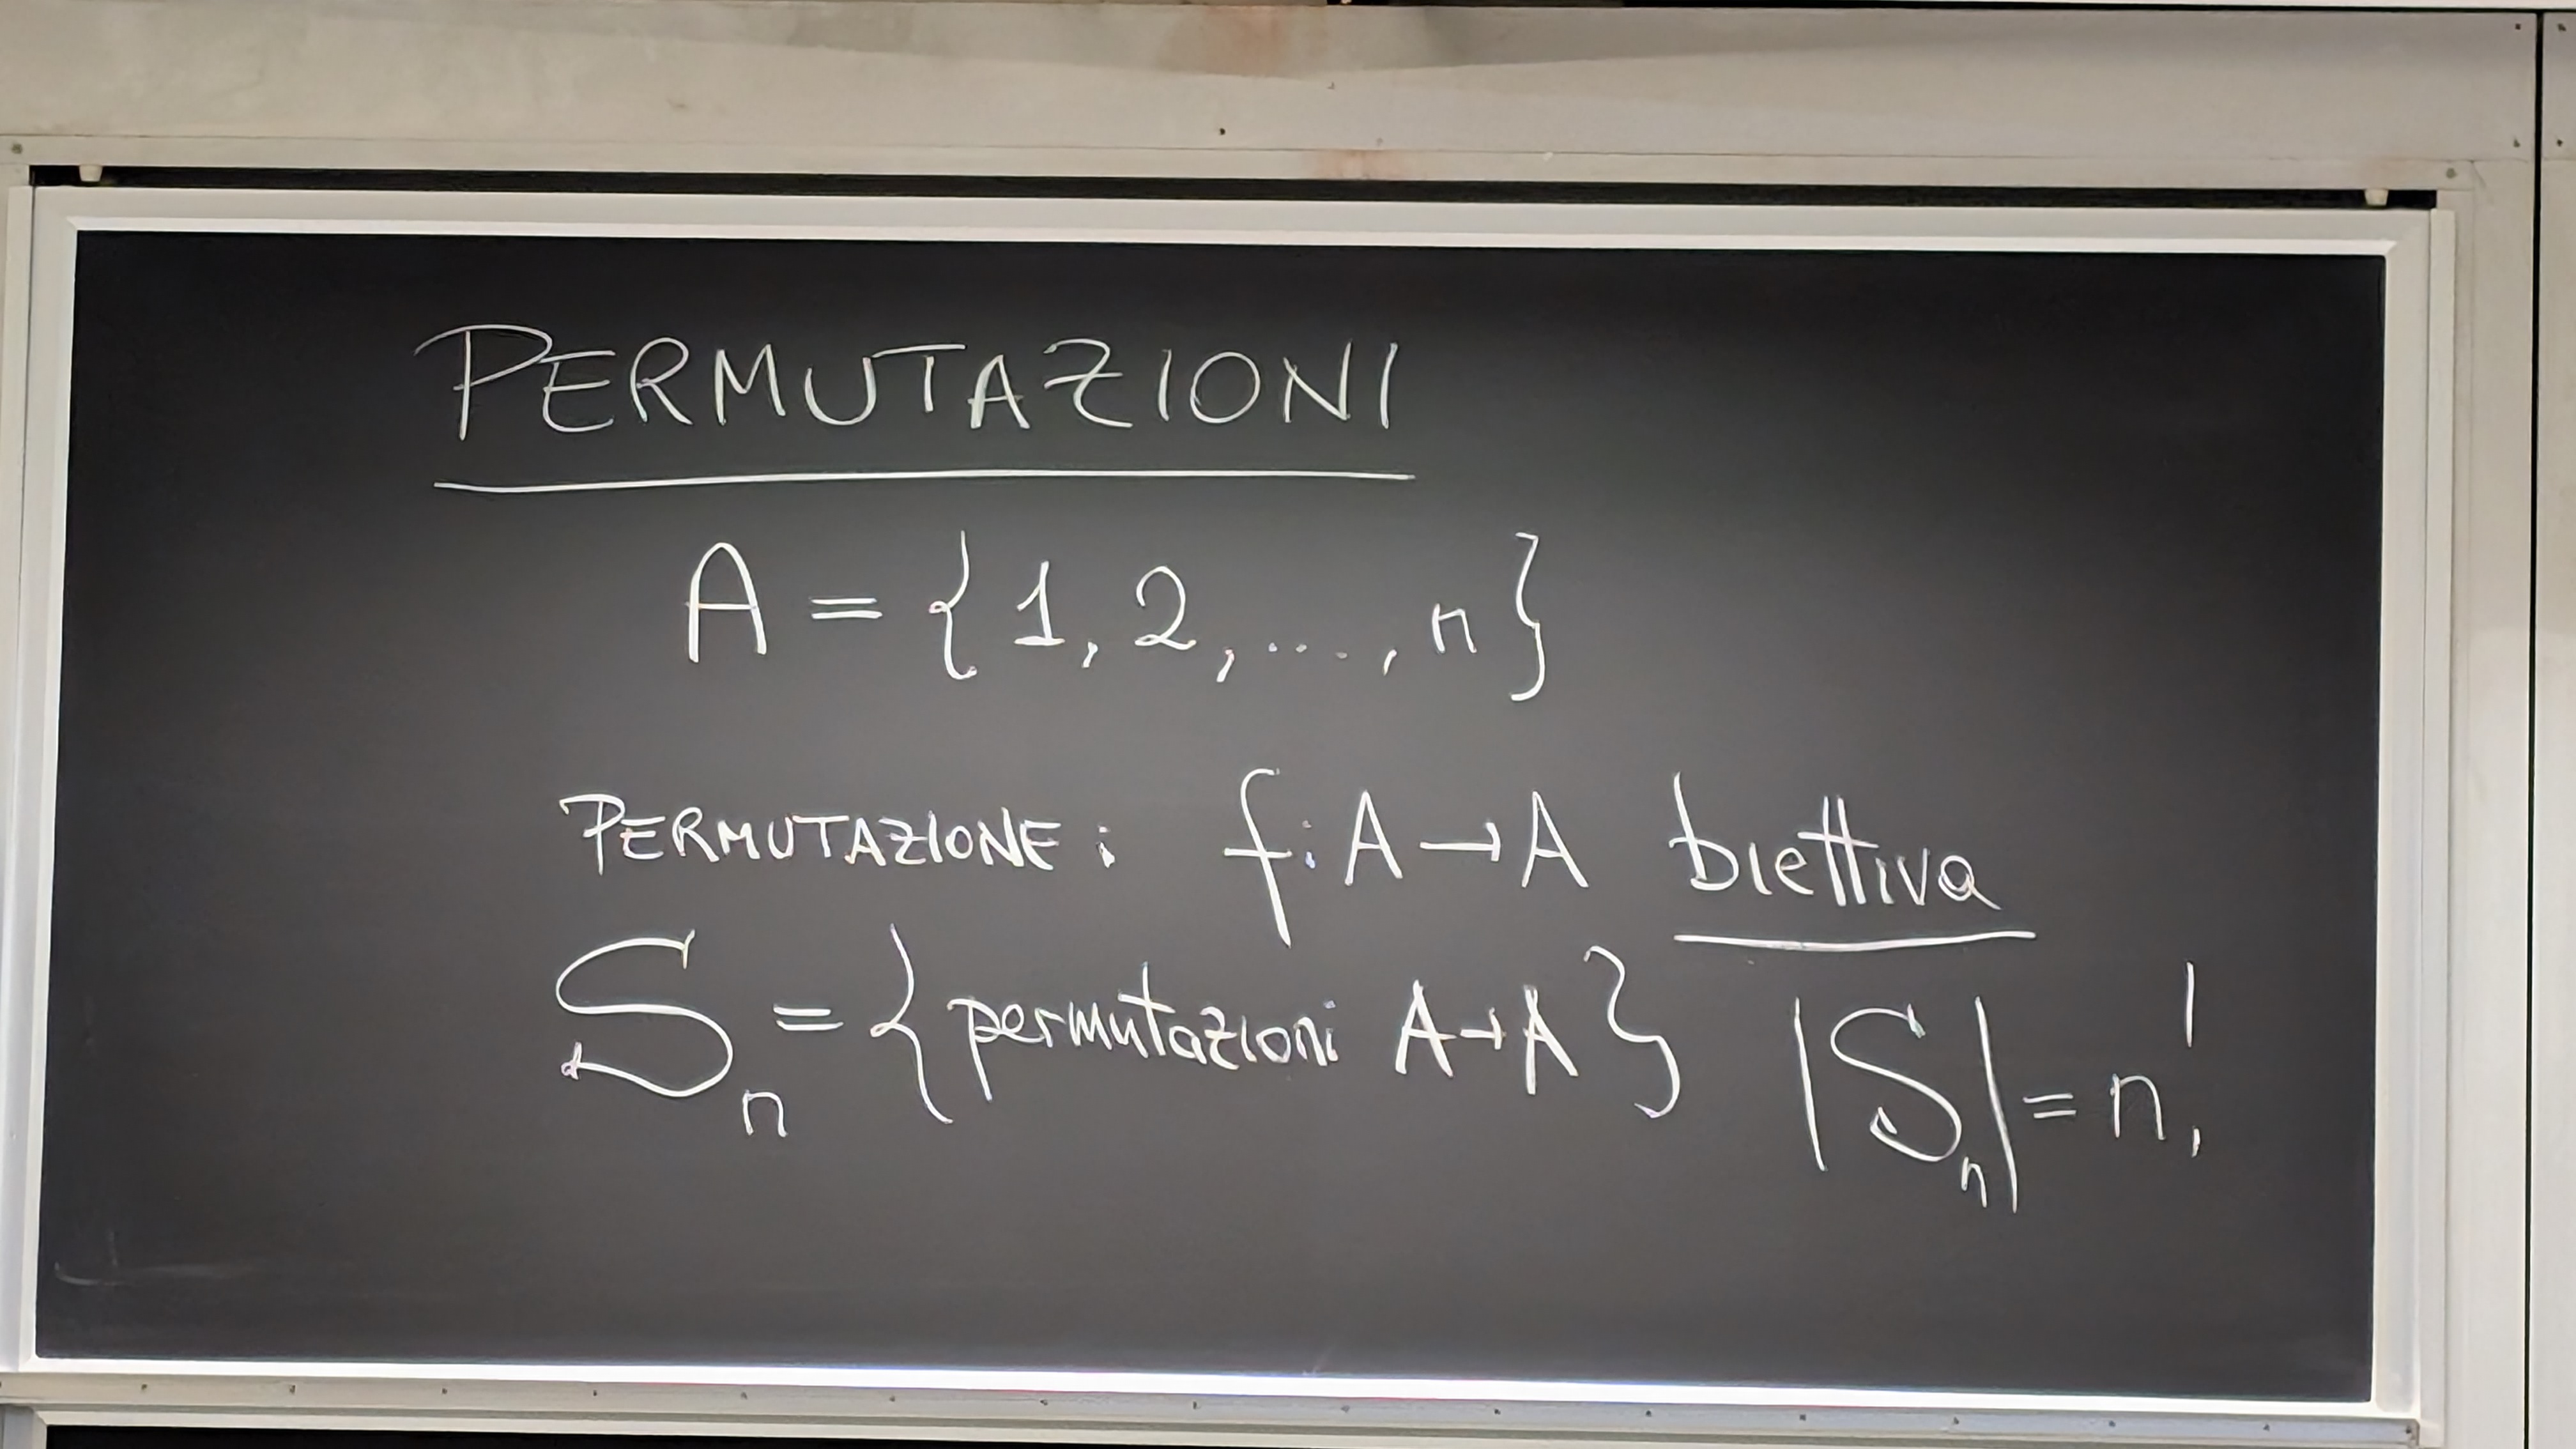 PERMUTAZIONI
A = {1, 2, ...., n}
PERMUTAZIONE: f: A → A biettiva
Sₙ = {permutazioni A → A} |Sₙ| = n!